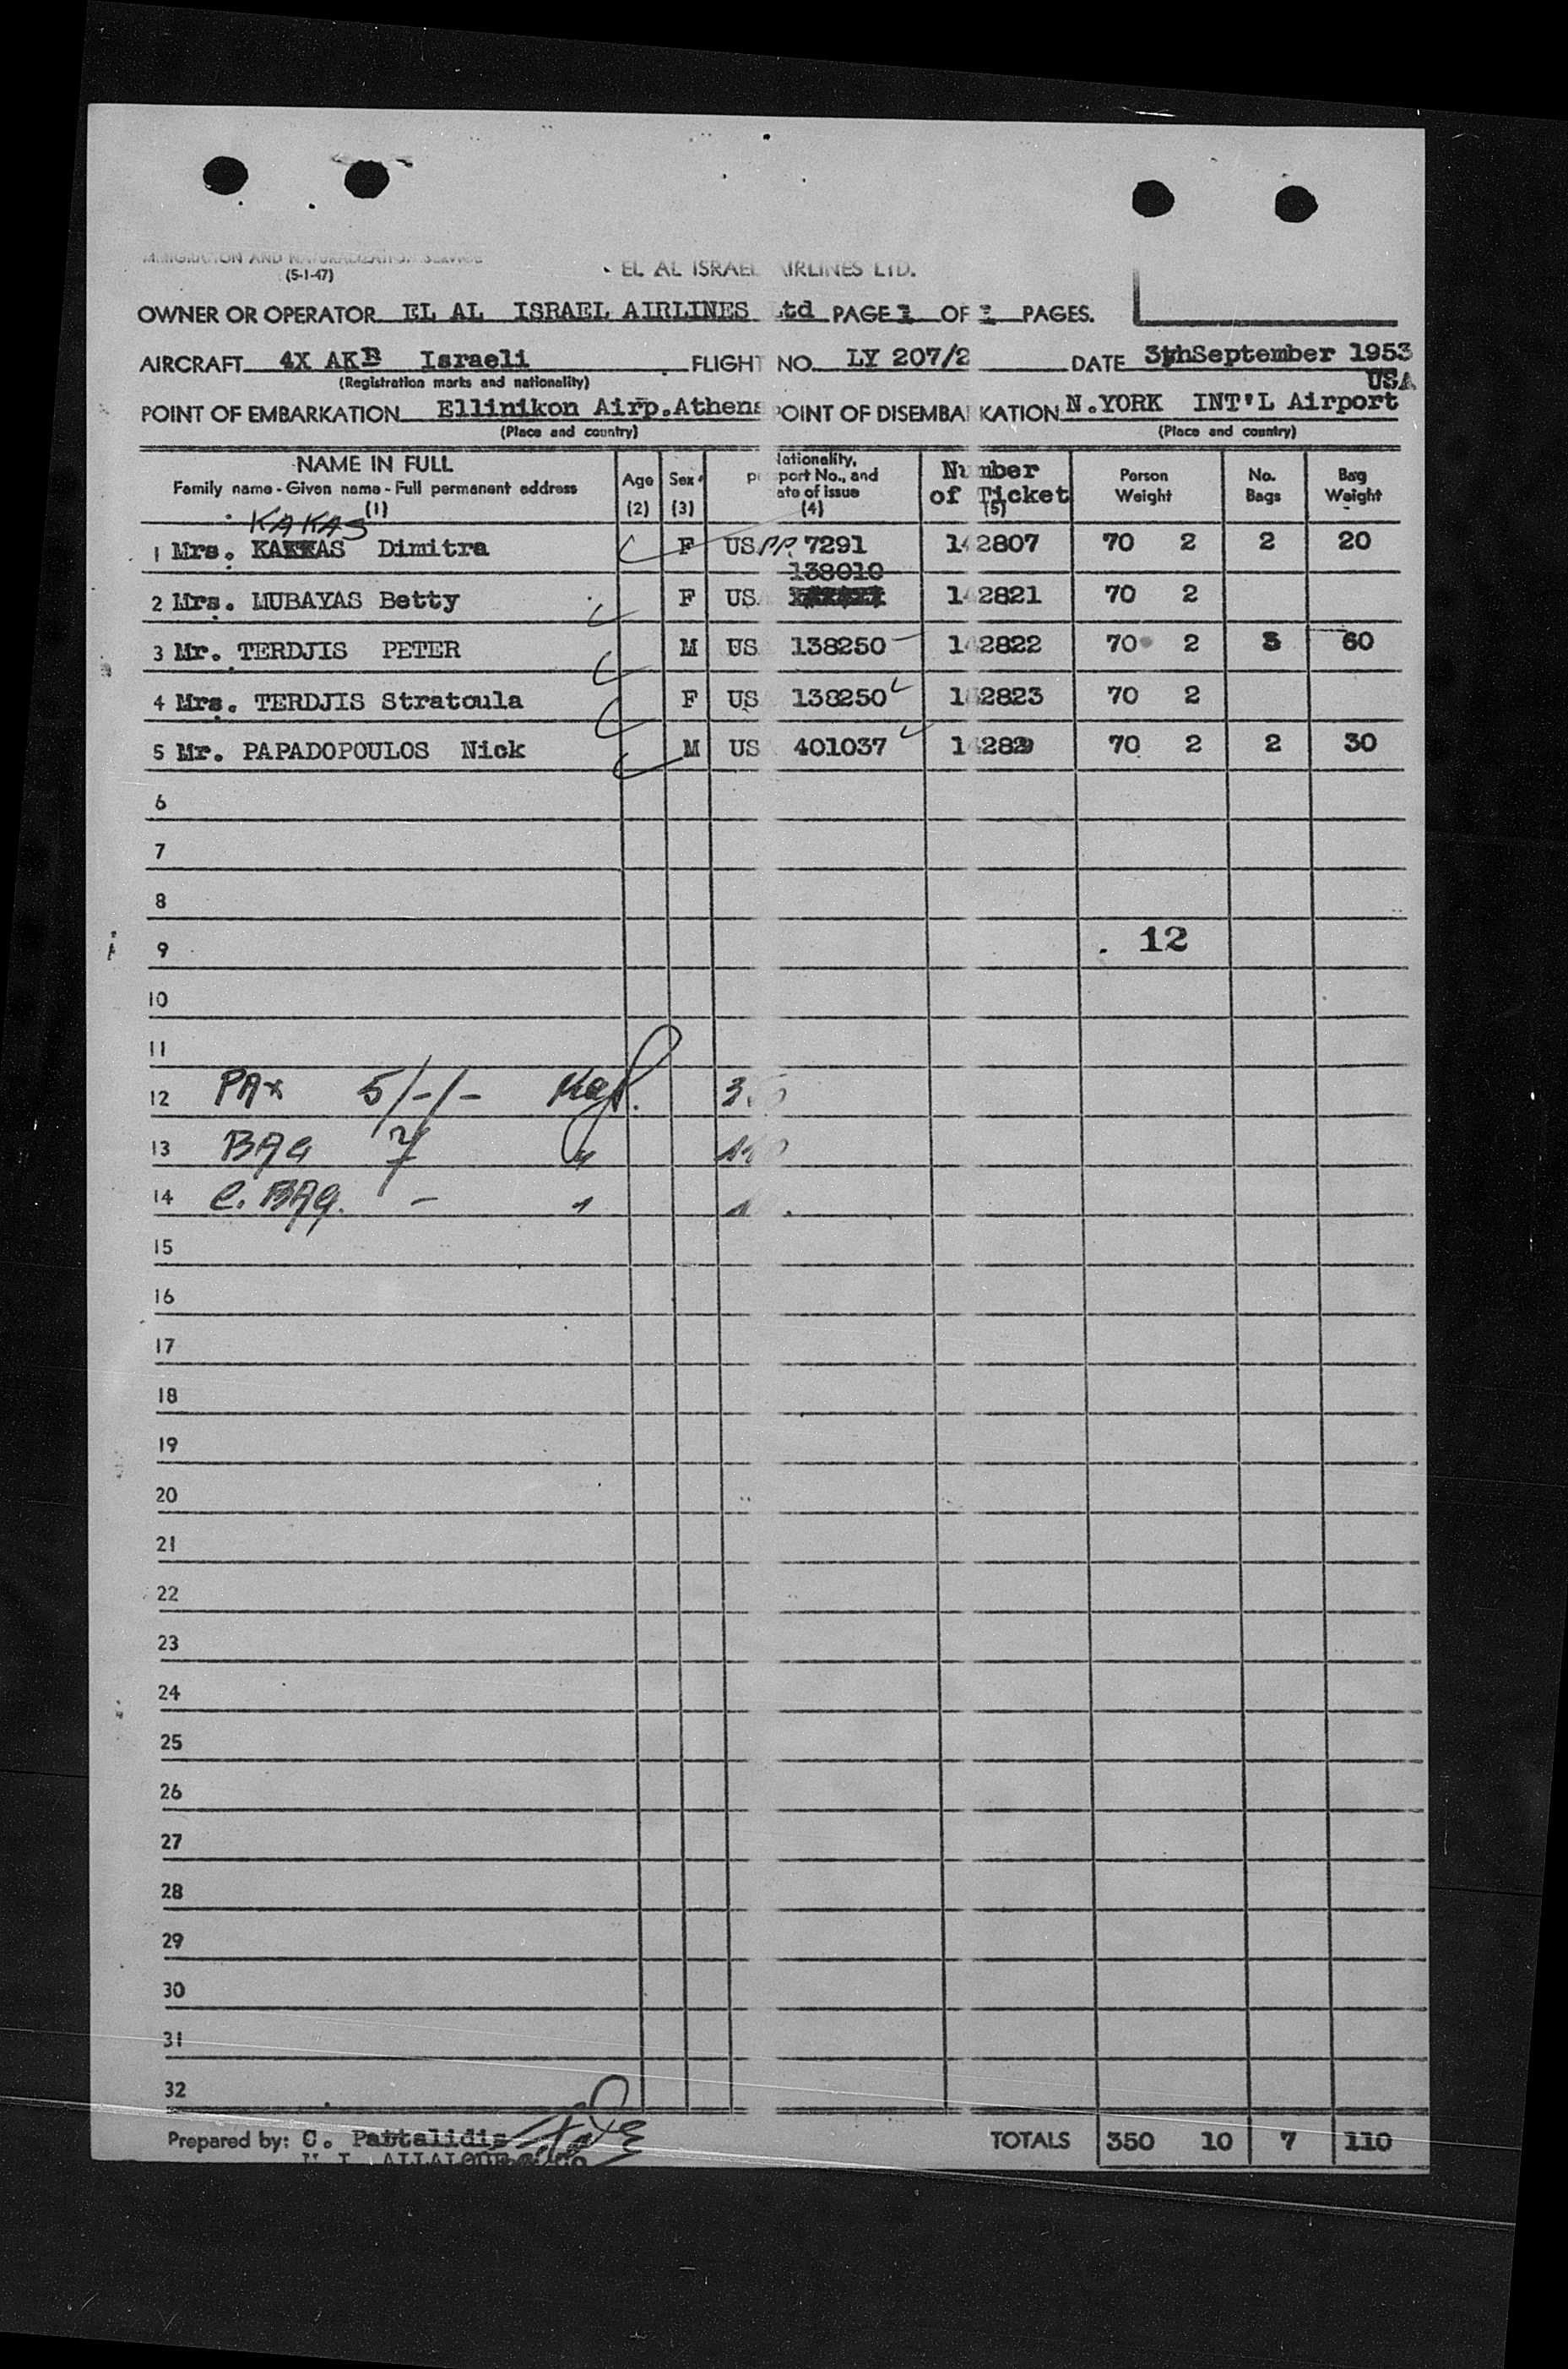 IMMIGRATION AND NATURALIZATION SERVICE
(5-1-47)
EL AL ISRAEL AIRLINES LTD.
OWNER OR OPERATOR EL AL ISRAEL AIRLINES Ltd PAGE 1 OF 1 PAGES.
AIRCRAFT 4X AKB Israeli FLIGHT NO. LY 207/2 DATE 3thSeptember 1953
(Registration marks and nationality)
USA
POINT OF EMBARKATION Ellinikon Airp.Athens POINT OF DISEMBARKATION N.YORK INT'L Airport
(Place and country) (Place and country)
NAME IN FULL
Family name - Given name - Full permanent address
(1)
Age
(2)
Sex
(3)
Nationality,
port No., and
ate of issue
(4)
Number
of Ticket
(5)
Person
Weight
No.
Bags
Bag
Weight
KAKAS
1 Mrs. KAKKAS Dimitra F US PP. 7291 142807 70 2 2 20
138010
2 Mrs. MUBAYAS Betty F US 142821 70 2
3 Mr. TERDJIS PETER M US 138250 142822 70 2 3 60
4 Mrs. TERDJIS Stratoula F US 138250 142823 70 2
5 Mr. PAPADOPOULOS Nick M US 401037 14282 70 2 2 30
6
7
8
9 12
10
11
12 PAX 5/-/- Kgf.
13 BAG 7 "
14 C. BAG. -
15
16
17
18
19
20
21
22
23
24
25
26
27
28
29
30
31
32
Prepared by: C. Pattalidis TOTALS 350 10 7 110